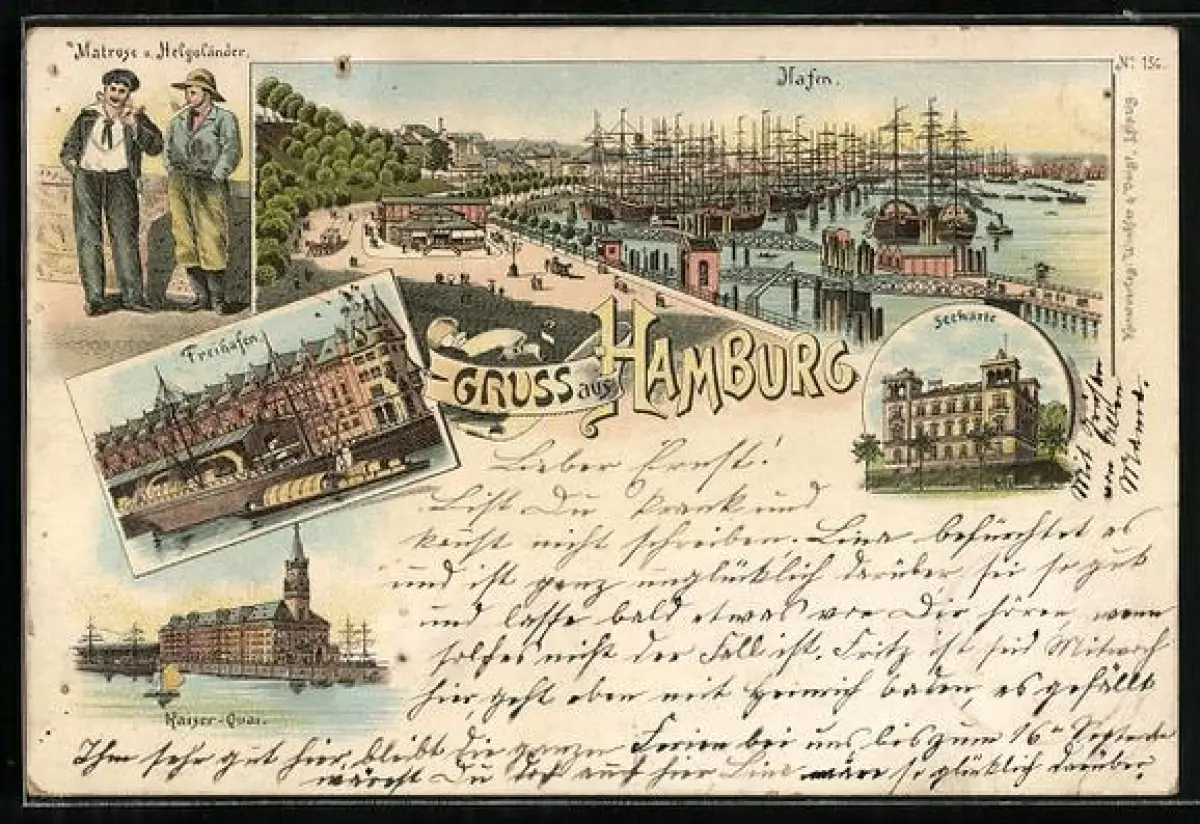 Matrose u. Helgoländer.
Hafen.
No 156.
Freihafen.
Seewarte
GRUSS aus HAMBURG
Kaiser-Quai.
Lieber Ernst!
Bist Du krank und
kannst nicht schreiben. Lina befürchtet es
und ist ganz unglücklich darüber sei so gut
und lasse bald etwas von Dir hören, wenn
solches nicht der Fall ist. Fritz ist seid Mitwoch
hier, geht eben mit Heinrich baden, es gefällt
Ihm sehr gut hier, bleibt die ganzen Ferien bei uns bis zum 16ten
wärest Du doch auch hier Lina wäre so glücklich darüber.
Mit Grüßen
von
Mama.